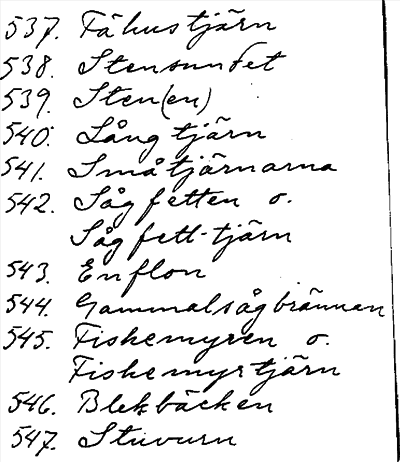 537. Fähustjärn
538. Stensundet
539. Sten(en)
540. Långtjärn
541. Småtjärnarna
542. Sågfetten o.
Sågfett-tjärn
543. Enflon
544. Gammalsågbrännan
545. Fiskemyren o.
Fiskemyrtjärn
546. Blekbäcken
547. Stuvurn